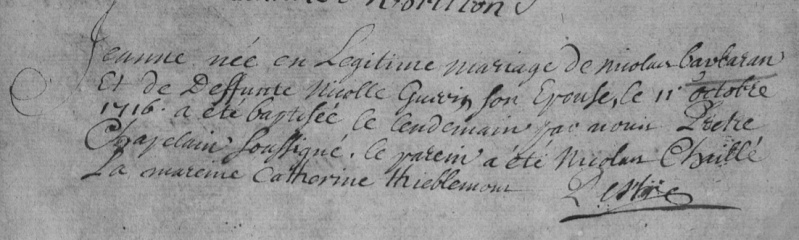 Jeanne née en Legitime mariage de Nicolas barbaran
Et de Deffunte Nicolle Guerin son Epouse, le 11e octobre
1716. a été baptisée le lendemain par nous Prêtre
Chapelain soussigné. le parein a été Nicolas Chaillé
La mareine Catherine thieblemont